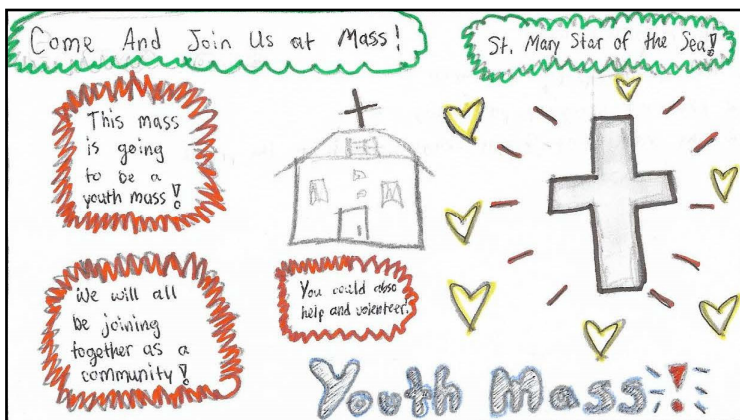 Come And Join Us at Mass!
St. Mary Star of the Sea!
This mass
is going
to be a
youth mass!
We will all
be joining
together as a
community!
You could also
help and volenteer.
Youth Mass!